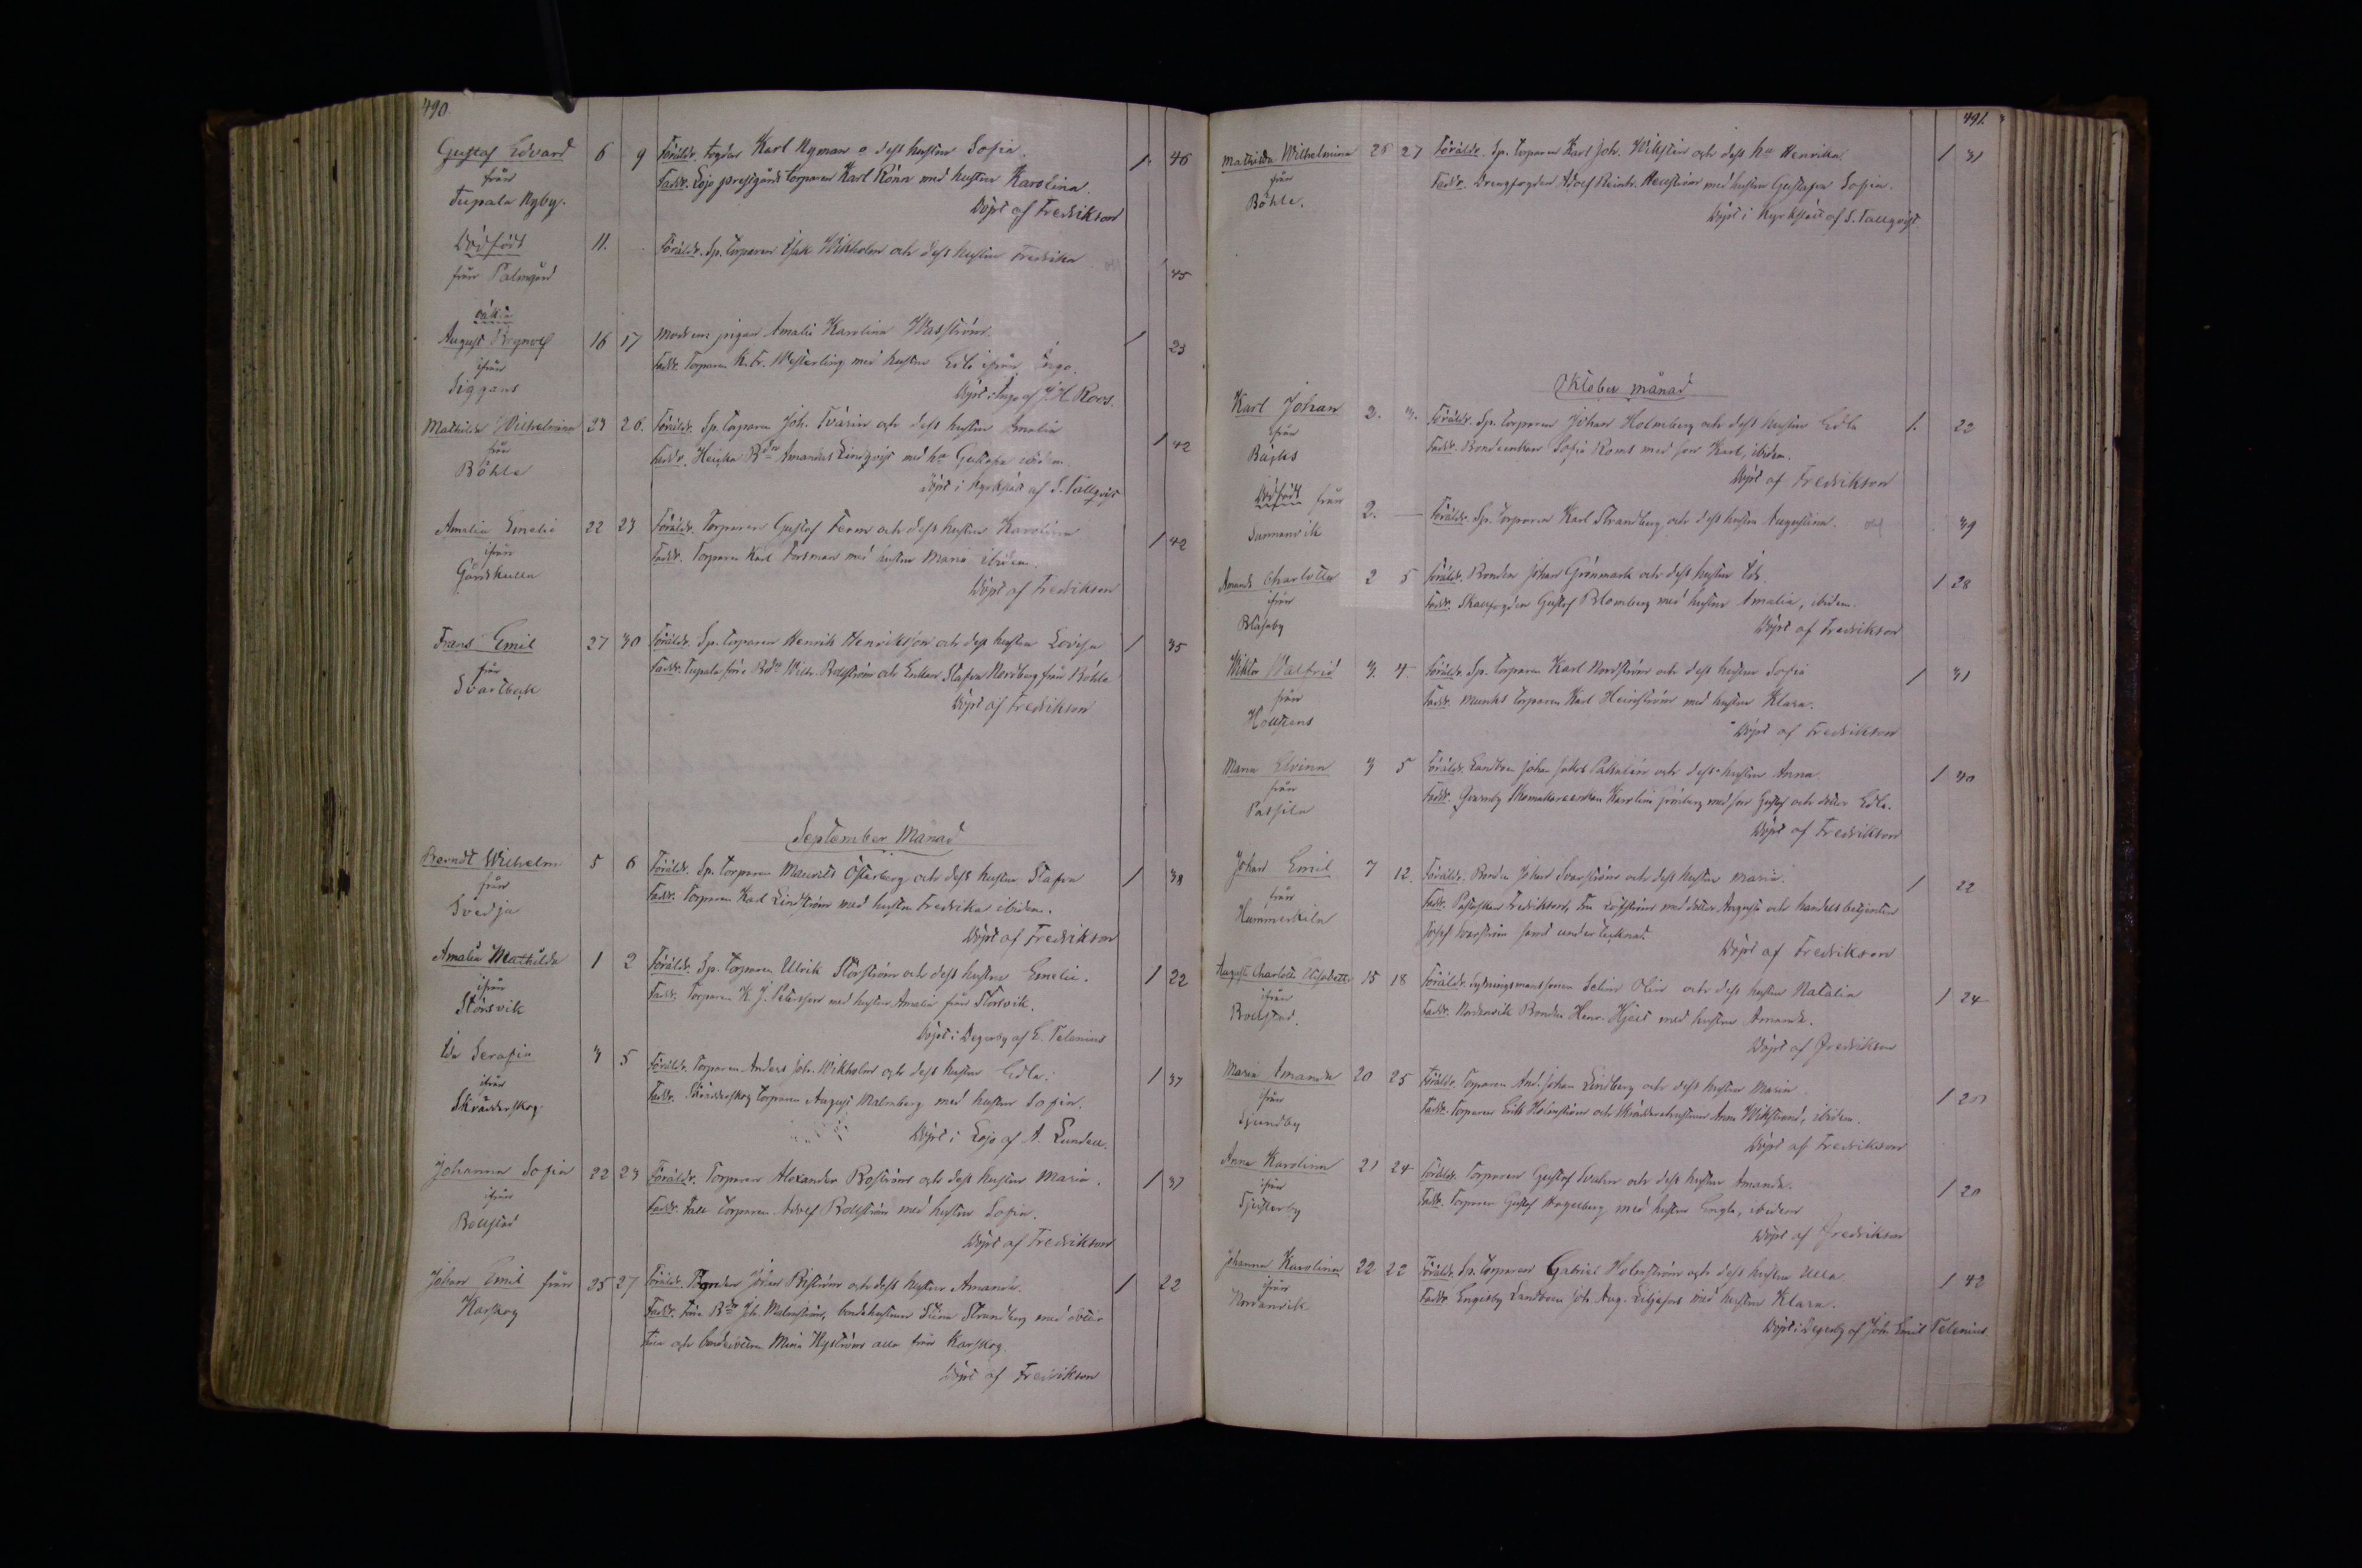 490.
Gustaf Edvard 6 9 Föräldr. fogden Karl Nyman o dess hustru Sofia. 1 46
från Faddr. Lojo prestgårds torparen Karl Rönn med hustru Karolina.
Tupala Nyby. Döpt af Fredrikson
Dödfödt 11. Föräldr. Sp. torparen Isak Wikholm och dess hustru Fredrika 45
från Palmgård
oäkta
August Brynolf 16 17 Modren pigan Amalia Karolina Wasström 1 23
ifrån Faddr. Torparen K. Fr. Westerling med hustru Edla ifrån Ingo.
Siggans Döpt i Ingo af J. H. Roos.
Mathilda Wilhelmina 23 26. Föräldr. Sp. torparen Joh. Tvärin och dess hustru Amalia 1 42
från Faddr. Amandus Lindqvist med ha Gustafva
Böhle Döpt i Kyrkslätt af S. Tallqvist
Amalia Emelie 22 23 Föräldr. Torparen Gustaf Ferm och dess hustru Karolina 1 42
ifrån Faddr. Torparen Karl Forsman med hustru Maria ibidem.
Gårdskulla Döpt af Fredrikson
Frans Emil 27 30 Föräldr. Sp. torparen Henrik Henriksson och dess hustru Lovisa 1 35
från Faddr. Tupala Wilh. Bollström och Enkan Stafva Nordberg från Böhle
Svartbäck Döpt af Fredrikson
September Månad
Berndt Wilhelm 5 6 Föräldr. Sp. torparen Mauritz Österberg och dess hustru Stafva 1 38
från Faddr. Torparen Karl Lindström med hustru Fredrika ibidem.
Svedja Döpt af Fredrikson
Amalia Mathilda 1 2 Föräldr. Sp. torparen Ulrik Storström och dess hustru Emelie. 1 22
ifrån Faddr. Torparen K. J. Peterson med hustru Amalia från Störsvik.
Störsvik Döpt i Degerby af E. Telenius
Ida Serafia 3 5 Föräldr. Torparen Anders Joh. Wikholm och dess hustru Edla. 1 37
ifrån Faddr. Skräddarskog torparen August Malmberg med hustru Sofia.
Skräddarskog Döpt i Lojo af A. Lundell.
Johanna Sofia 22 23 Föräldr. Torparen Alexander Boström och dess hustru Maria. 1 37
ifrån Faddr. torparen Adolf Bollström med hustru Sofia.
Bollstad Döpt af Fredrikson
Johan Emil från 25 27 Föräldr. Bonden Johan Boström och dess hustru Amanda. 1 22
Karskog Faddr. Joh. Malmström, bondehustrun Stina Strandberg med
och Mina Nyström alla från Karskog.
Döpt af Fredrikson
491.
Mathilda Wilhelmina 25 27 Föräldr. Sp. torparen Karl Joh. Wikstén och dess ha Henrika. 1 31
från Faddr. Drengfogden Adolf Reinh. Henström med hustru Gustafva Sofia.
Böhle. Döpt i Kyrkslätt af S. Tallqvist
Oktober månad
Karl Johan 2. 3. Föräldr. Sp. torparen Johan Holmberg och dess hustru Edla 1. 22
ifrån Faddr. Bondeenkan Sofia Roms med son Karl, ibidem.
Döpt af Fredrikson
Dödfödt från 2. — Föräldr. Sp. torparen Karl Strandberg och dess hustru Augustina. 39
Sunnanvik
Amanda Charlotta 2 5 Föräldr. Bonden Johan Grönmark och dess hustru Ida. 1 28
ifrån Faddr. Skallfogden Gustaf Blomberg med hustru Amalia, ibidem.
Blåseby Döpt af Fredrikson
Wiktor Walfrid 3. 4. Föräldr. Sp. torparen Karl Nordström och dess hustru Sofia 1 31
från Faddr. Munks torparen Karl Heinström med hustru Klara.
Döpt af Fredrikson
Maria Elvina 3 5 Föräldr. Landbon Johan Jakob och dess hustru Anna 1 30
från Faddr. Karolina Grönberg med son Gustaf och dotter Edla.
Passila Döpt af Fredrikson
Johan Emil 7 12. Föräldr. Bonden Johan Svarström och dess hustru Maria. 1 22
från Faddr. Fredrikson, Fru Löfström med dotter Augusta och handelsbetjenten
Josef Svarström samt undertecknad.
Döpt af Fredrikson
Augusta Charlotta Elisabeth 15 18 Föräldr. Selim Olin och dess hustru Natalia 1 24
ifrån Faddr. Nordanvik Bonden Henr. Hjelt med hustru Amanda.
Bollstad. Döpt af Fredrikson
Maria Amanda 20 25 Föräldr. Torparen And. Johan Lindberg och dess hustru Maria. 1 20
ifrån Faddr. Torparen Erik Holmström och Anna Wikstrand, ibidem.
Sjundby Döpt af Fredrikson
Anna Karolina 21 24 Föräldr. Torparen Gustaf och dess hustru Amanda. 1 20
ifrån Faddr. Torparen Gustaf Hagelberg med hustru Engla, ibidem
Tjusterby Döpt af Fredrikson
Johanna Karolina 22 22 Föräldr. Sp. torparen Gabriel Holmström och dess hustru Ulla. 1 42
ifrån Faddr. Engisby Landbon Joh. Aug. Liljefors med hustru Klara.
Nordanvik Döpt i Degerby af Joh. Emil Telenius